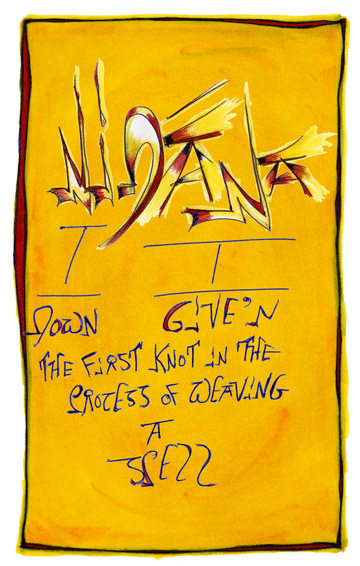 NIDANA
DOWN GIVE'N
THE FIRST KNOT IN THE
PROCESS OF WEAVING
A
SPELL